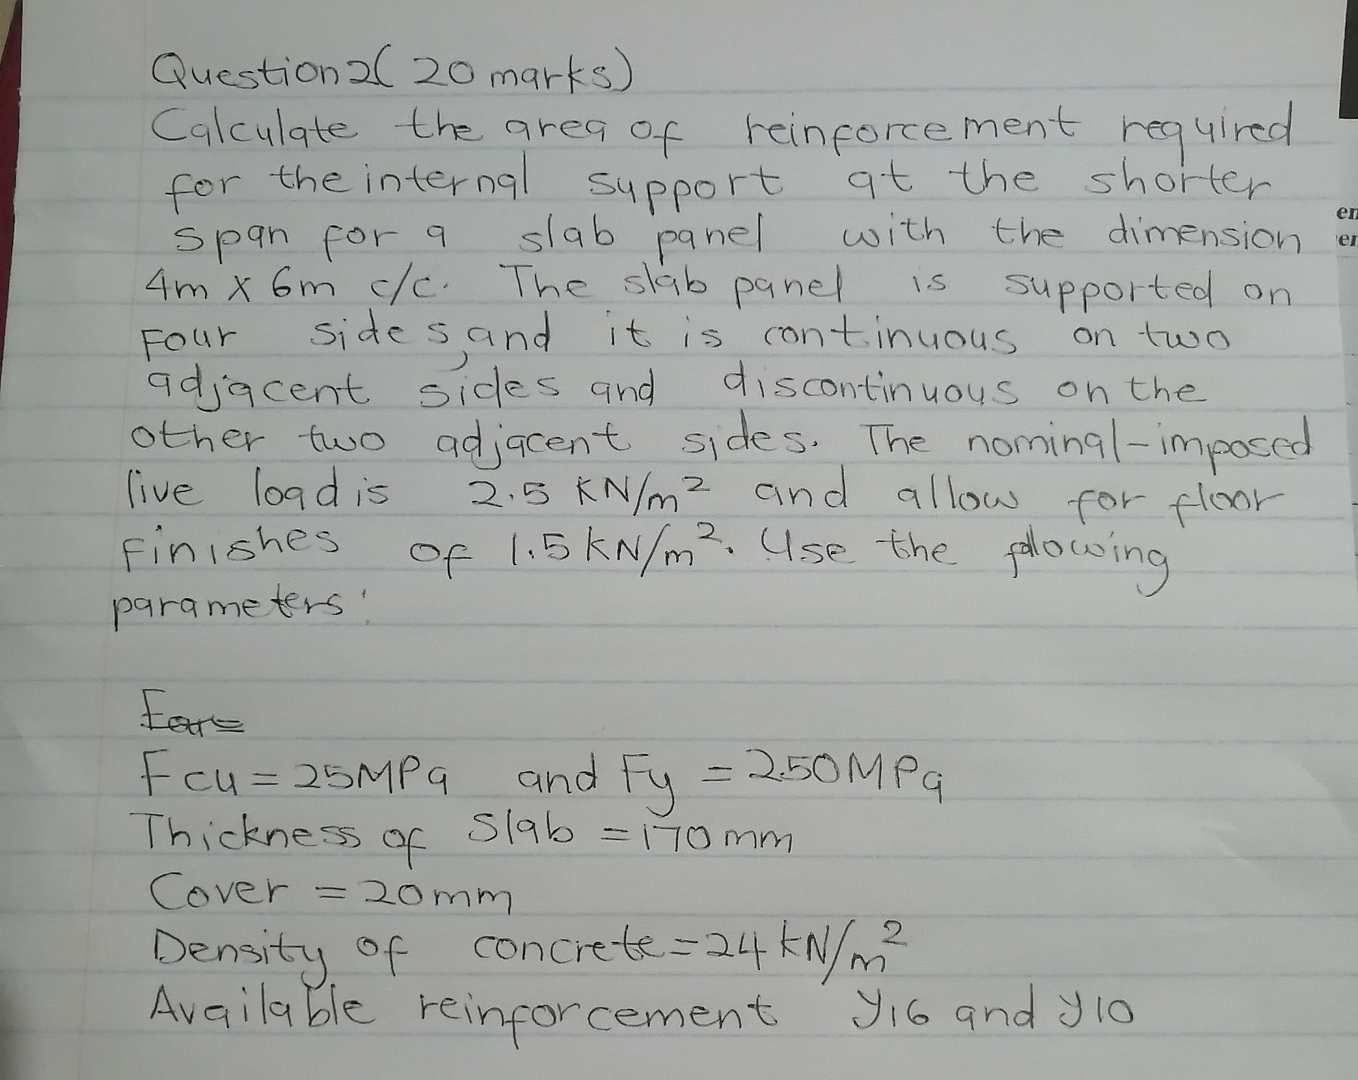 Question 2( 20 marks)
Calculate the area of reinforcement required
for the internal support at the shorter
span for a slab panel with the dimension
4m x 6m c/c. The slab panel is supported on
Four sides, and it is continuous on two
adjacent sides and discontinuous on the
other two adjacent sides. The nominal-imposed
live load is 2.5 KN/m² and allow for floor
Finishes of 1.5 kN/m². Use the
parameters:
Fcu = 25MPa and Fy = 250MPa
Thickness of Slab = 170mm
Cover = 20mm
Density of concrete = 24 kN/m²
Available reinforcement Y16 and Y10
er
er